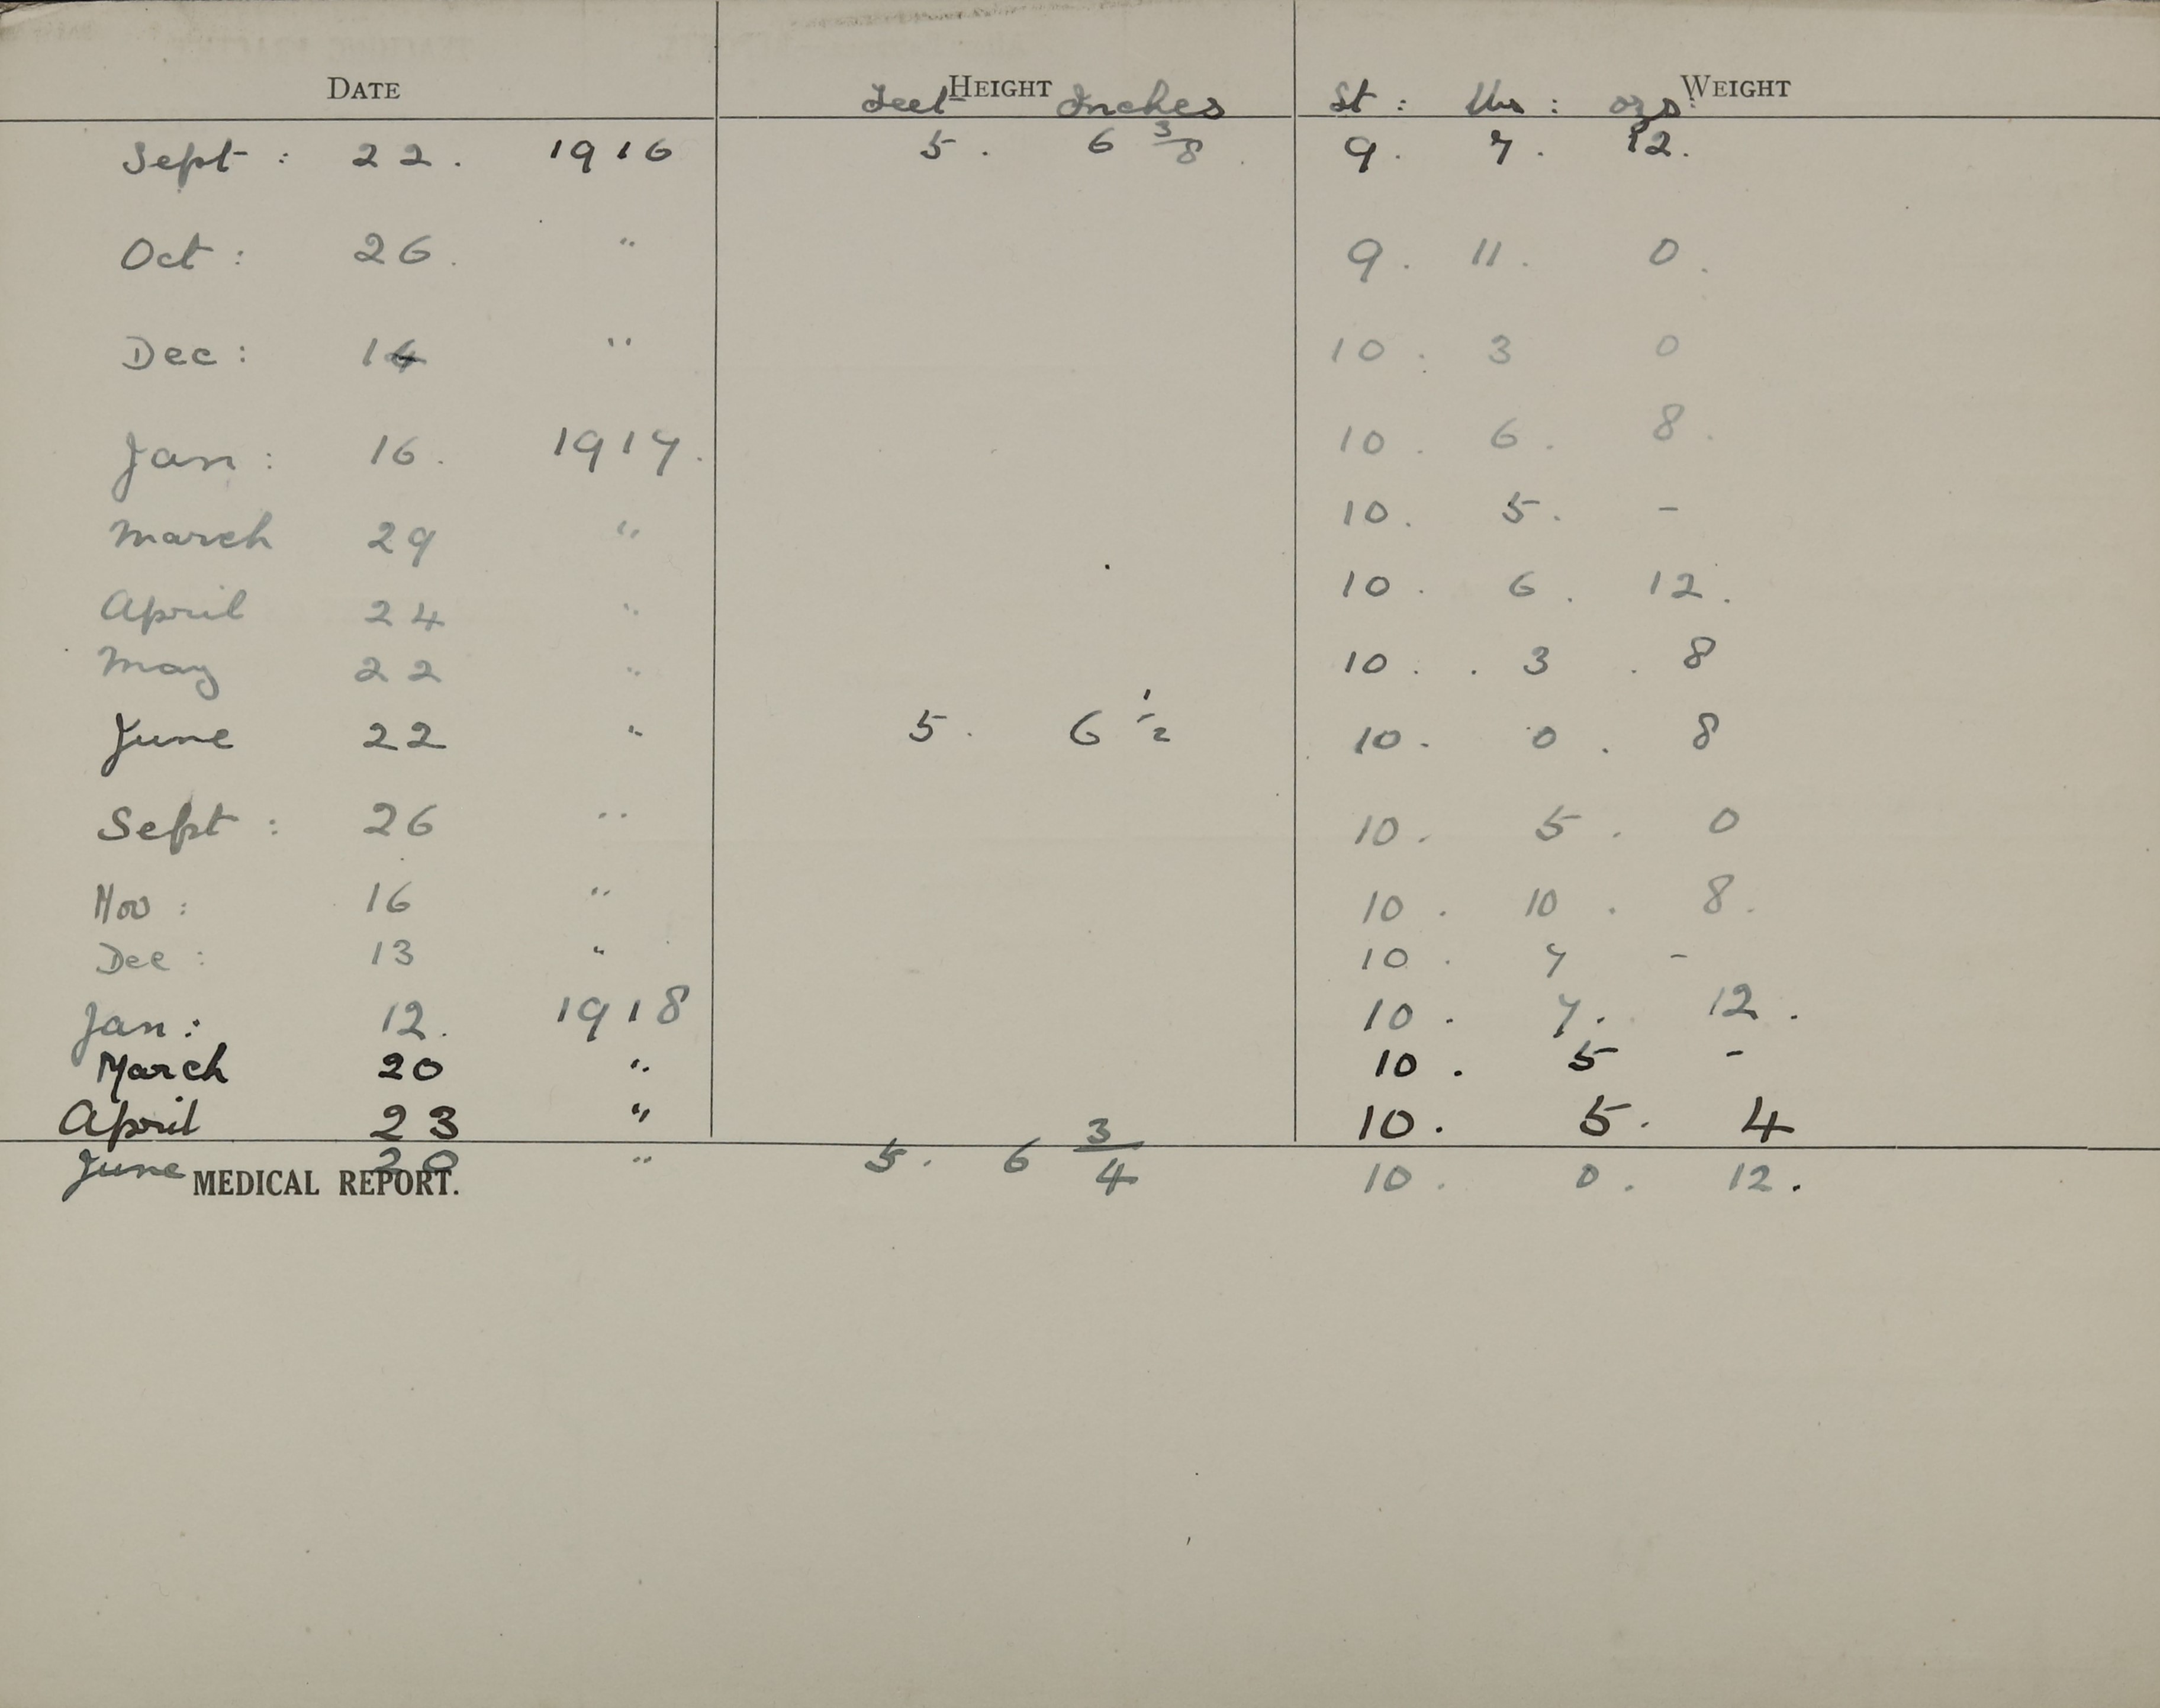 DATE HEIGHT WEIGHT
Feet Inches St : lbs : ozs :
Sept : 22. 1916 5. 6 3/8. 9. 7. 12.
Oct : 26. " 9. 11. 0.
Dec : 14 " 10. 3 0
Jan : 16. 1917. 10. 6. 8.
March 29 " 10. 5. -
April 24 " 10. 6. 12.
May 22 " 10. 3. 8
June 22 " 5. 6 1/2 10. 0. 8
Sept : 26 " 10. 5. 0
Nov : 16 " 10. 10. 8.
Dec : 13 " 10. 7 -
Jan : 12. 1918 10. 7. 12.
March 20 " 10. 5 -
April 23 " 10. 5. 4
June 20 " 5. 6 3/4 10. 0. 12.
MEDICAL REPORT.